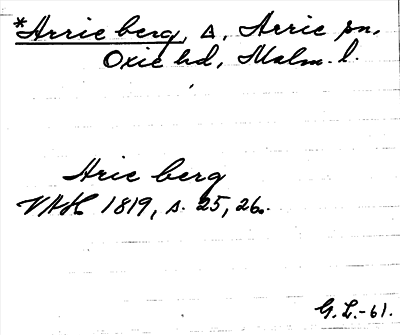 *Arrie berg, Δ, Arrie sn,
Oxie hd, Malm. l.
Arie berg
VAH 1819, s. 25, 26.
G. L. -61.